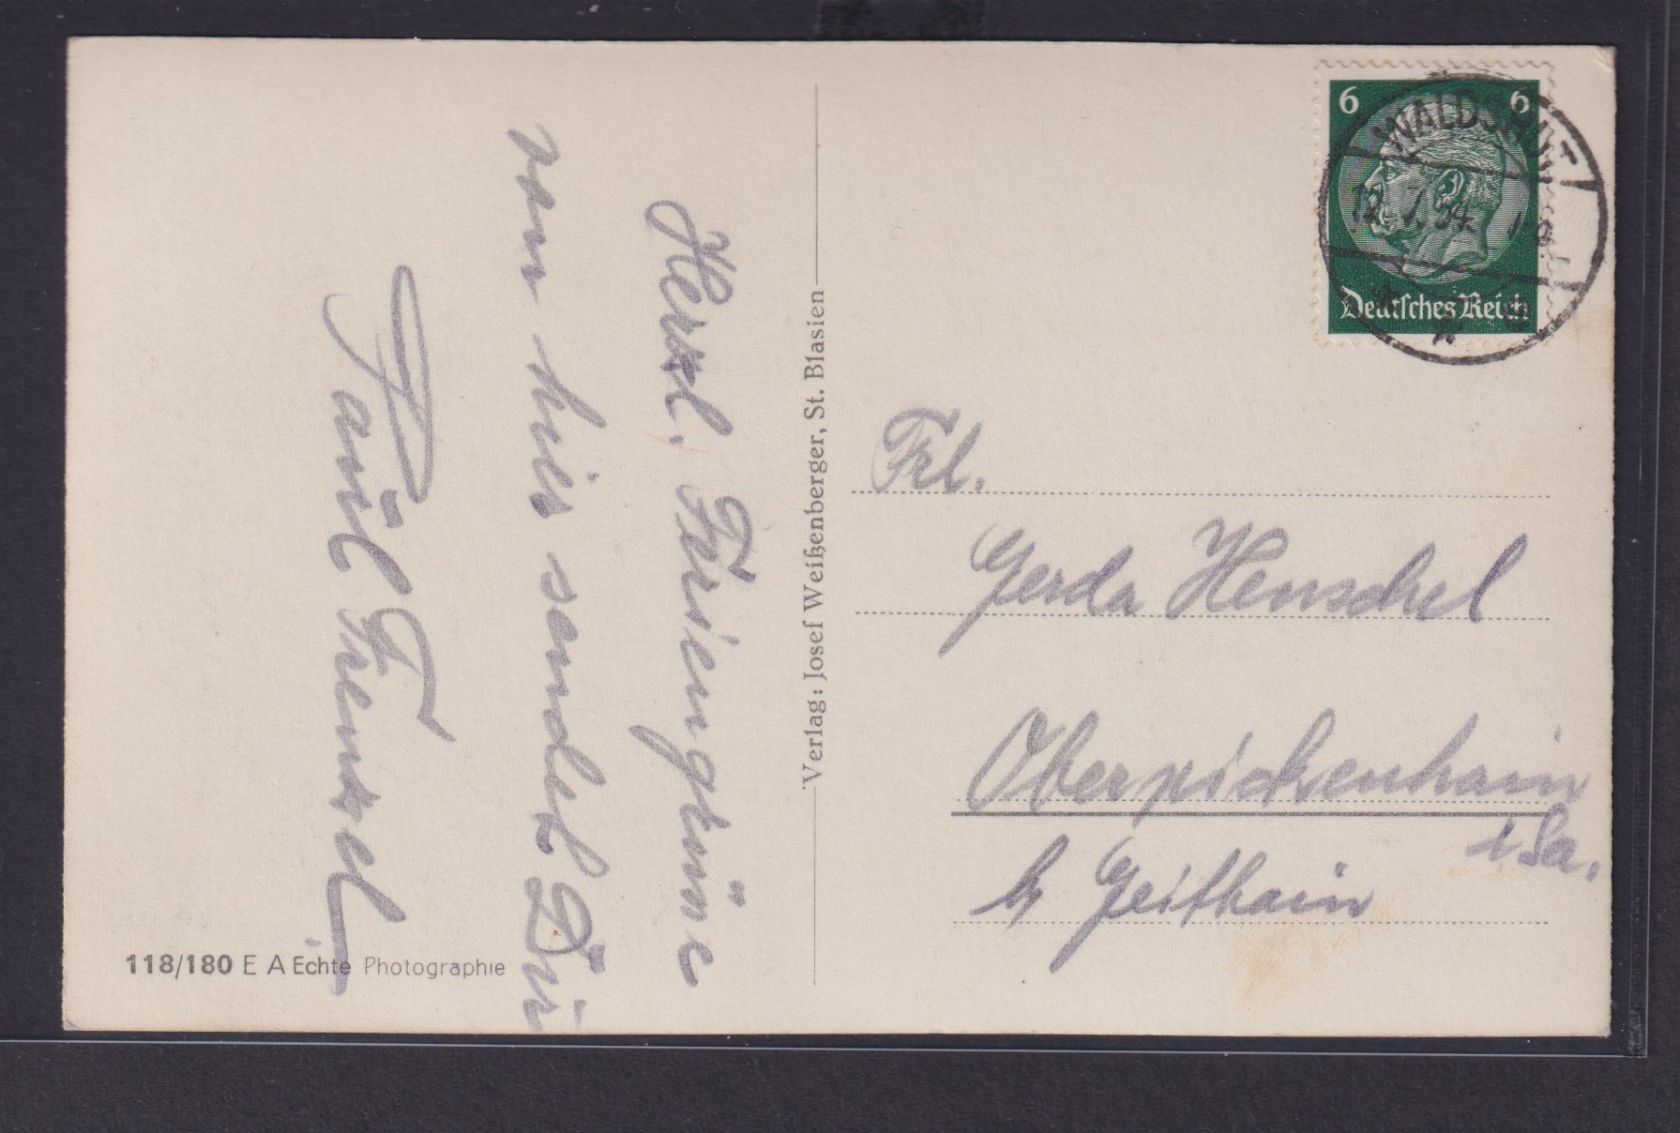 Herzl. Feriengrüße
von hier sendet Dir
Paul Frenzel
118/180 E A Echte Photographie
Verlag: Josef Weißenberger, St. Blasien
6 6
Deutsches Reich
WALDSHUT
12.7.34
Frl.
Gerda Henschel
Oberpickenhain
i Sa.
b Geithain